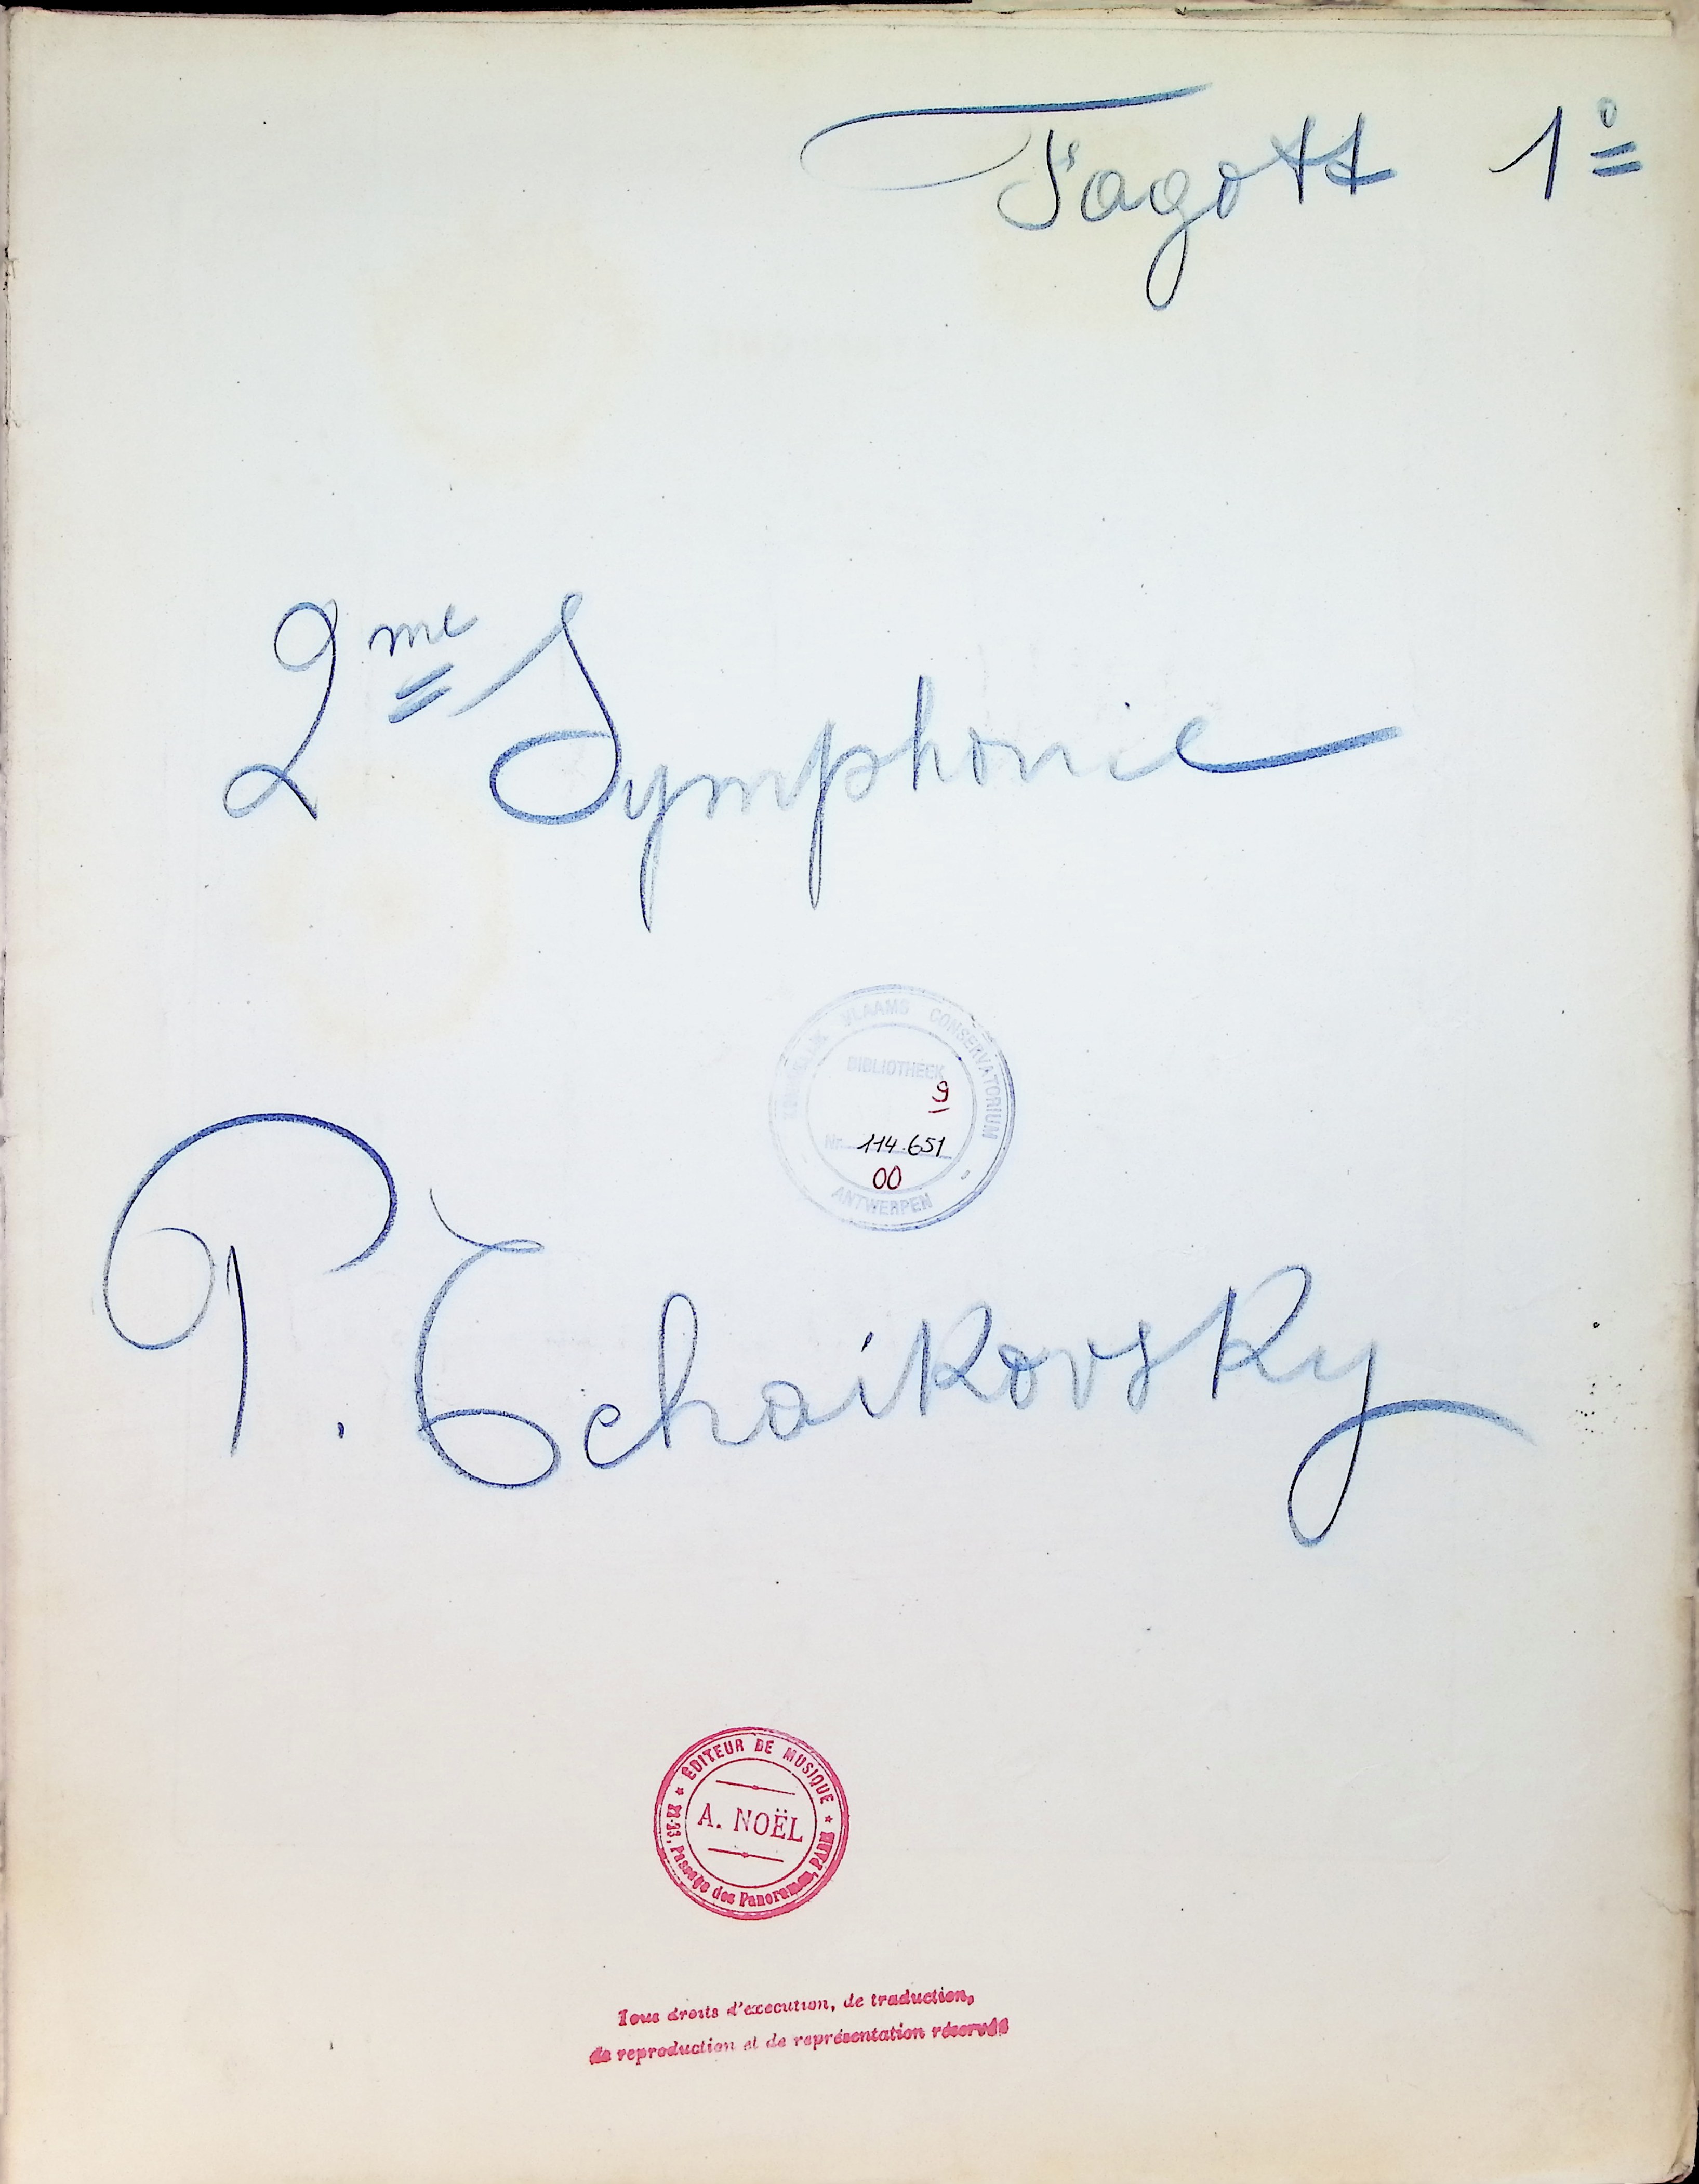 Fagott 1º
2me Symphonie
KONINKLIJK VLAAMS CONSERVATORIUM
BIBLIOTHEEK
9
Nr 114.651
00
ANTWERPEN
P. Tchaikovsky
ÉDITEUR DE MUSIQUE
A. NOËL
Passage des Panoramas, PARIS
Tous droits d'execution, de traduction,
de reproduction et de représentation réservés